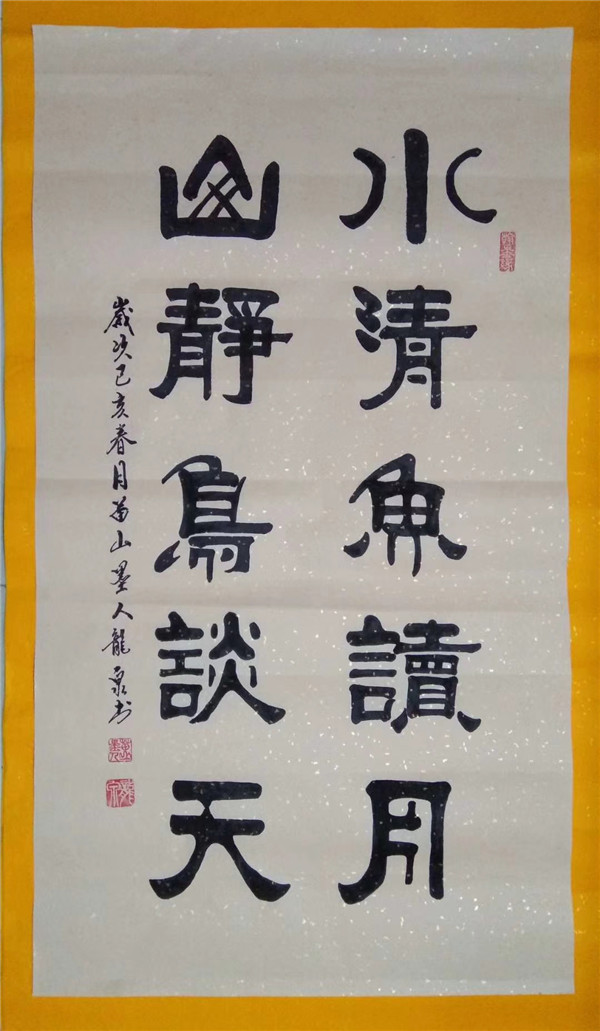 水清魚讀月
山靜鳥談天
歲次己亥春月留山墨人龍泉书